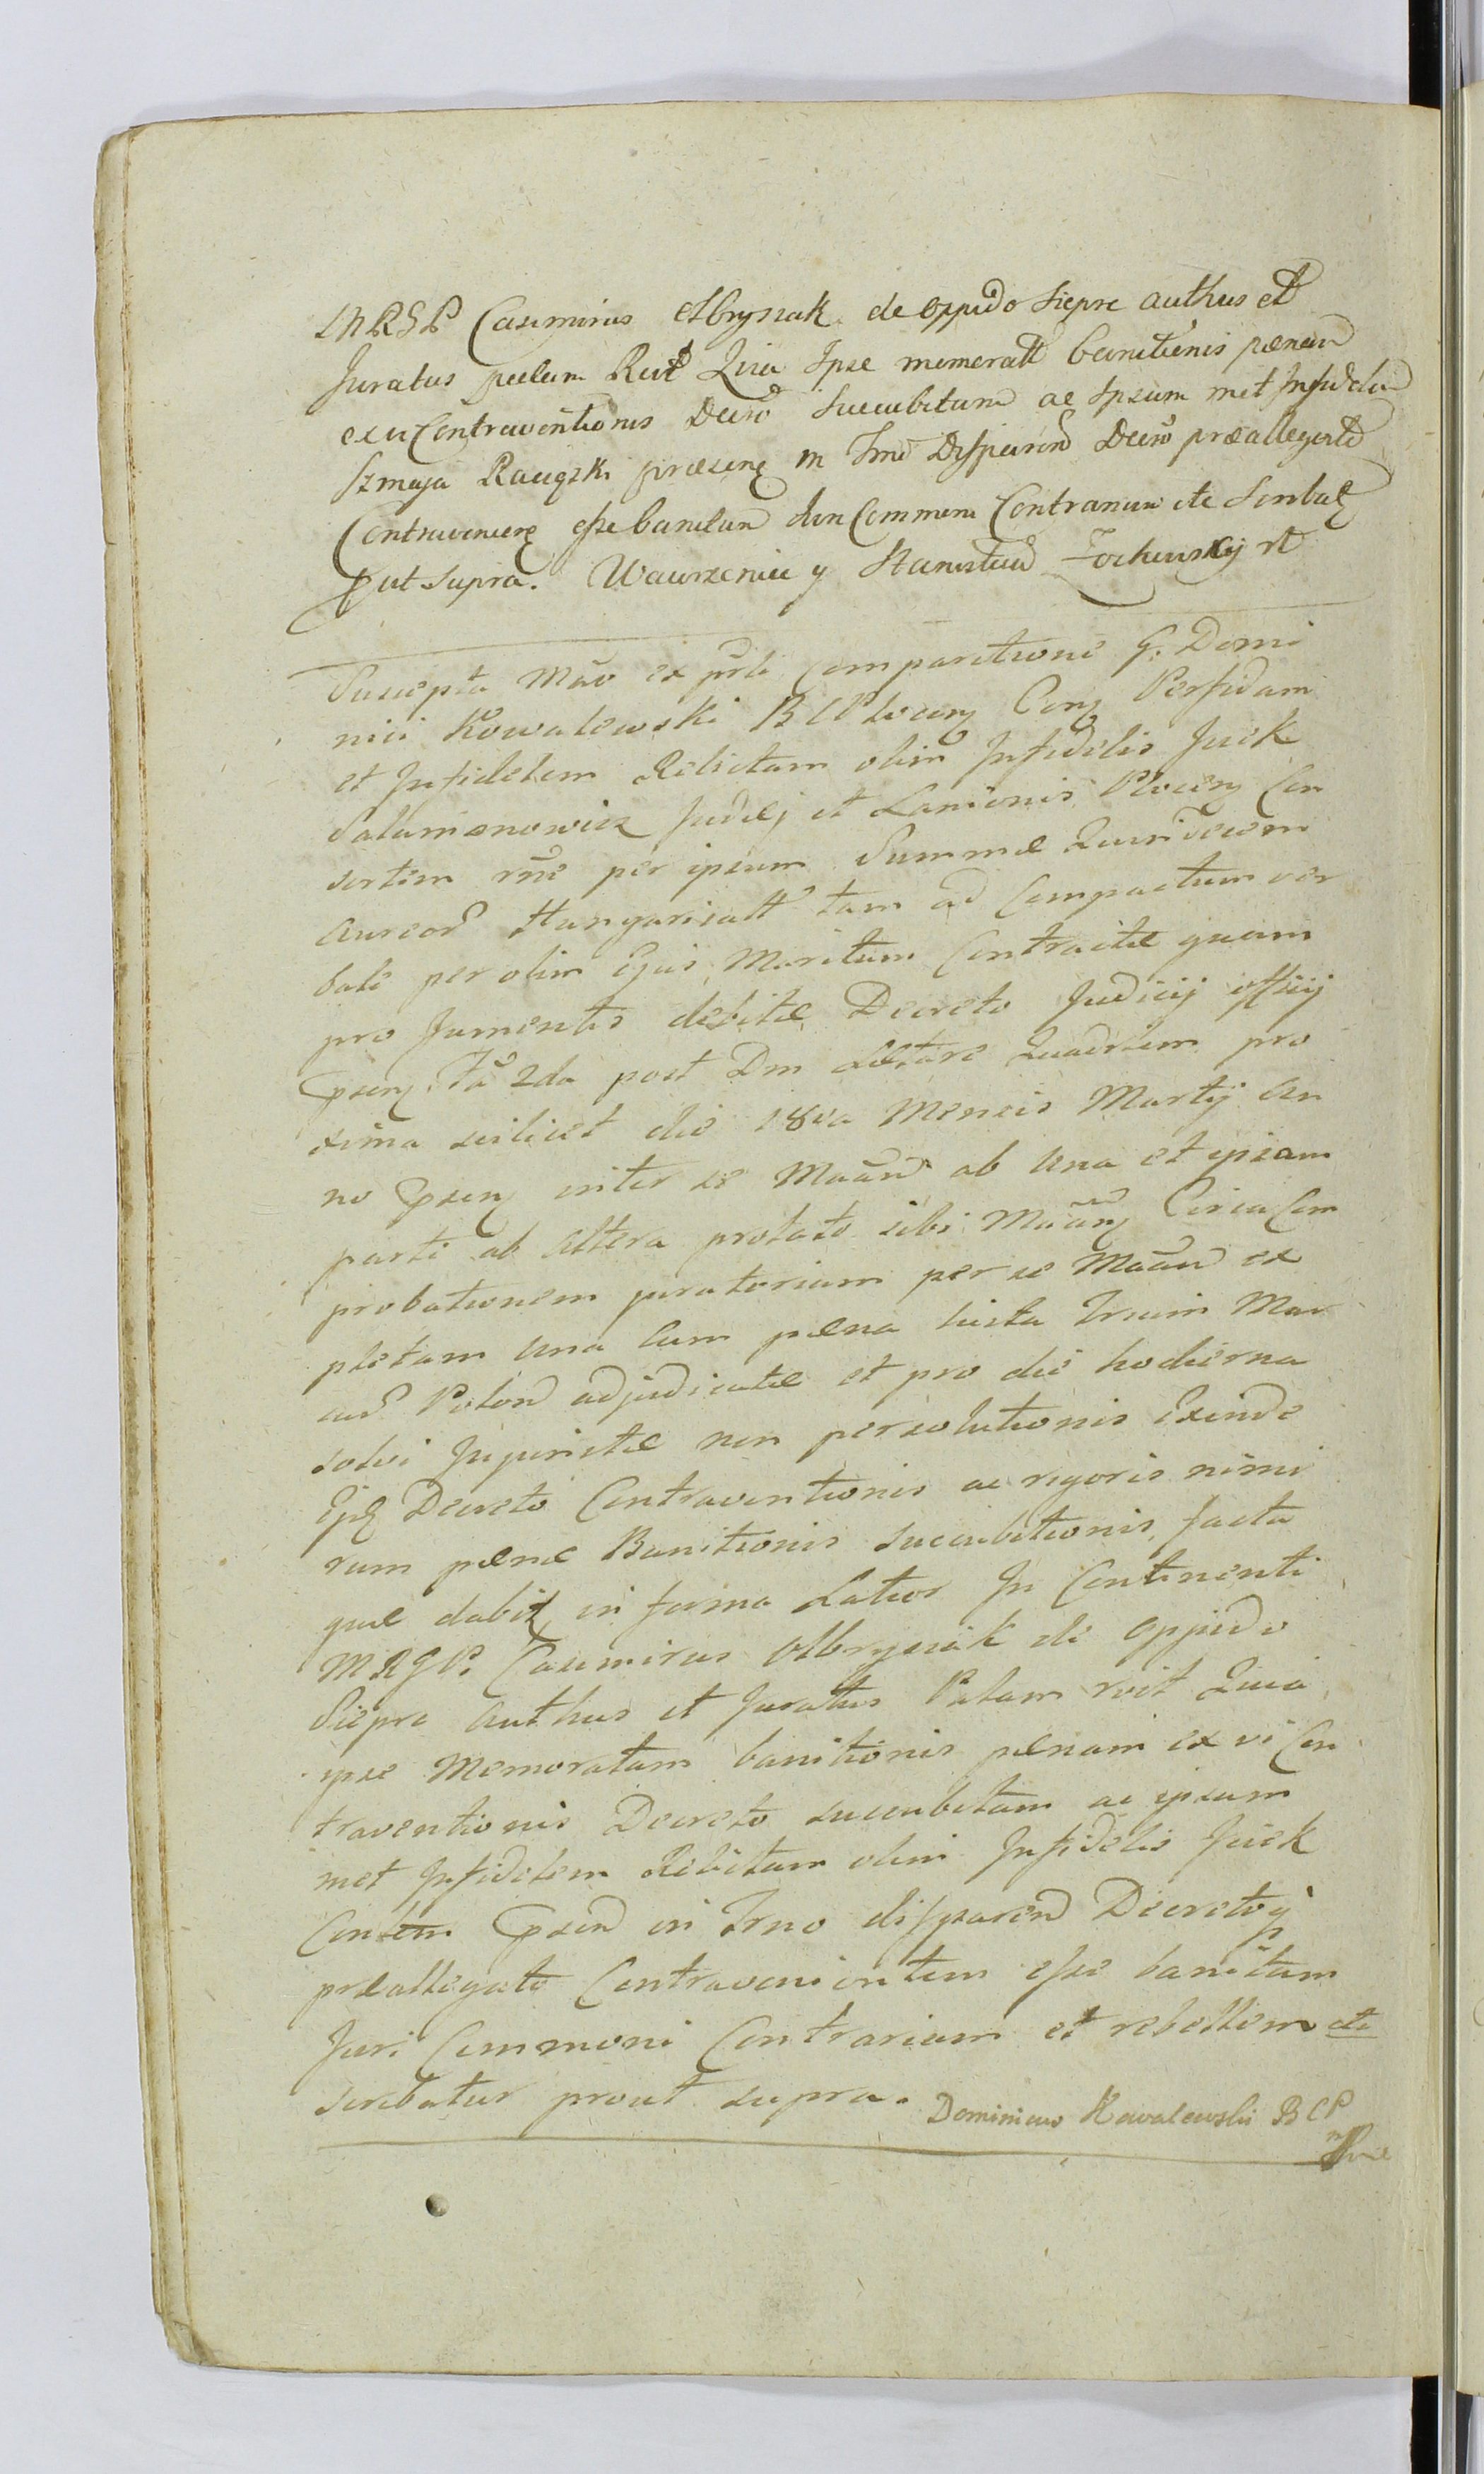 MRGP Casimirus Olbryszak de oppido Siepre authus et
Juratus palam Rect Quia Ipse memoratt banitionis pœnam
ex vi Contraventionis Decto Succubitam ac Ipsum met Infidelem
Szmuja præsen in Tmo Disparen Decto præallegato
Contravenien esse banitum Juri Commni Contrarium etc Scribat
put supra. Wawrzeniec y Stanisław
Suscepta Māo ex comparitione G. Domi
nici Kowalewski BCPlocen Perfidam
et Infidelem Relictam olim Infidelis Jcek
Salamonowicz Judej et Lanionis Plocen Con
sortem rne per ipsum Summæ Quindecem
Aureor Hungaricall tam ad Compactum ver
bale per olim Ejus Maritum Contractæ quam
pro Jumentis debitæ Decreto Judicij officij
psen fa 2da post Dm Lætare Quadrlem pro
xima scilicet die 18va Mensis Martij An
no psen inter se Māan ab Una et ipsam
parte ab Altera prolato sibi Māan Circa Com
probationem juratoriam per se Māan ex
pletam Una Cum pœna luita Trium Mar
car Polon adjudicatæ et pro die hodierna
solvi Injunctæ non persolutionis Exinde
Ejq Decreto Contraventionis ac rigoris nimi
rum pœnæ Banitionis succubitionis, facta
quæ dabit, in forma Latior In Continenti
MRGP. Casimirus Olbryszak de Oppido
Siepre Authus et Juratus Palam rect Quia
ipse Memoratam banitionis pœnam ex vi Con
traventionis Decreto succubitam ac ipsam
met Infidelem Relictam olim Infidelis Jcek
Contem psen in Trno disparen Decretoq
præallegato Contravenientem esse banitam
Juri Commoni Contrariam et rebellem etc
scribatur prout supra. Dominicus Kowalewski BCP